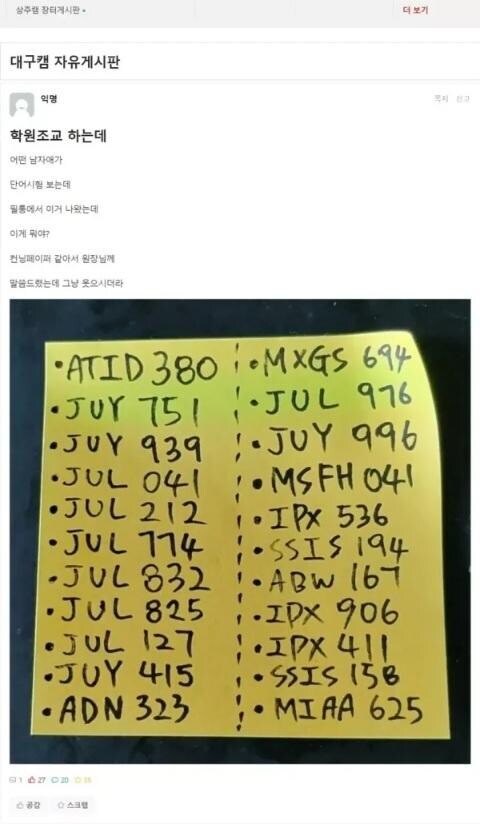 상주캠 장터게시판
더 보기
대구캠 자유게시판
익명
쪽지 신고
학원조교 하는데
어떤 남자애가
단어시험 보는데
필통에서 이거 나왔는데
이게 뭐야?
컨닝페이퍼 같아서 원장님께
말씀드렸는데 그냥 웃으시더라
•ATID 380
•JUY 751
•JUY 939
•JUL 041
•JUL 212
•JUL 774
•JUL 832
•JUL 825
•JUL 127
•JUY 415
•ADN 323
•MXGS 694
•JUL 976
•JUY 996
•MSFH 041
•IPX 536
•SSIS 194
•ABW 167
•IPX 906
•IPX 411
•SSIS 158
•MIAA 625
1 27 20 15
공감 스크랩